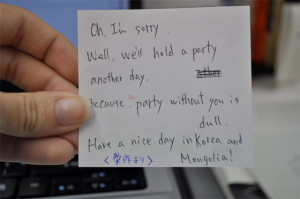 Oh, I'm sorry.
Well, we'll hold a party
another day.
because a party without you is
dull.
Have a nice day in Korea and
Mongolia!